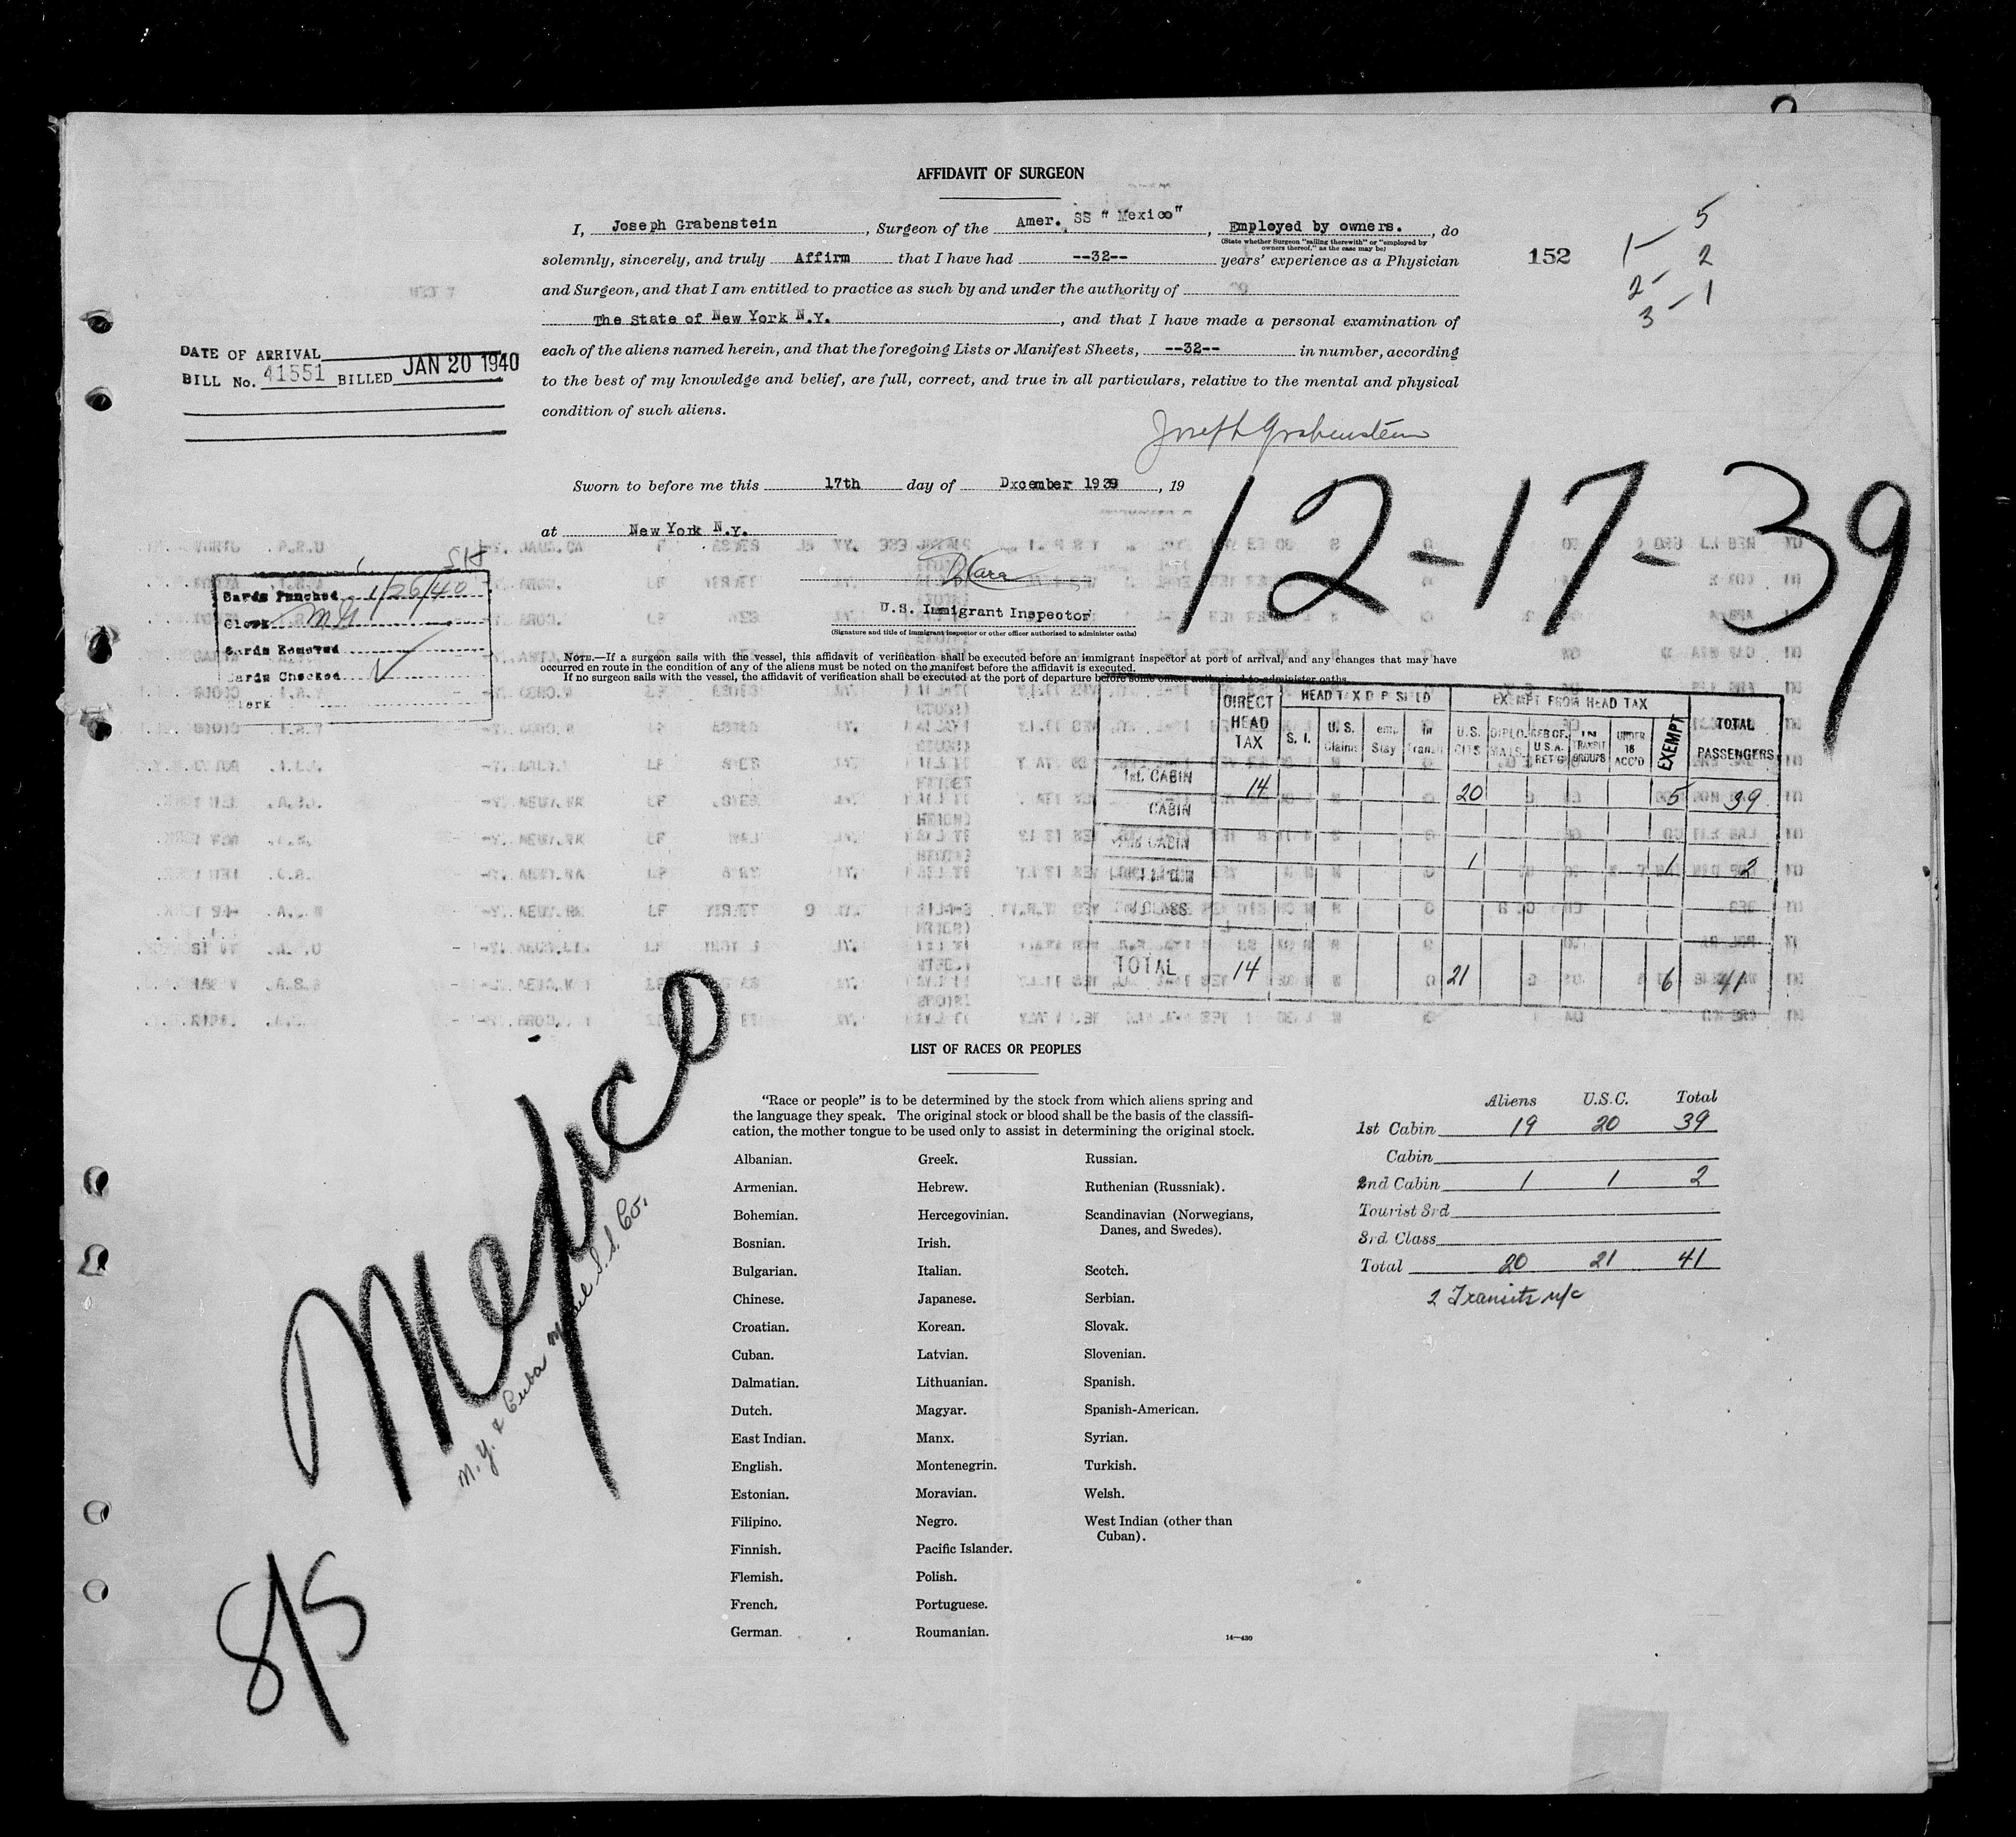 AFFIDAVIT OF SURGEON
I, Joseph Grabenstein, Surgeon of the Amer. SS "Mexico", Employed by owners., do
(State whether Surgeon "sailing therewith" or "employed by
owners thereof," as the case may be)
solemnly, sincerely, and truly Affirm that I have had --32-- years' experience as a Physician
and Surgeon, and that I am entitled to practice as such by and under the authority of
The State of New York N.Y., and that I have made a personal examination of
each of the aliens named herein, and that the foregoing Lists or Manifest Sheets, --32-- in number, according
to the best of my knowledge and belief, are full, correct, and true in all particulars, relative to the mental and physical
condition of such aliens.
Joseph Grabenstein
152
5
1- 2
2- 1
3-
DATE OF ARRIVAL
BILL No. 41551 BILLED JAN 20 1940
Sworn to before me this 17th day of Dxcember 1939, 19
at New York N.Y.
12-17-39
U.S. Immigrant Inspector
(Signature and title of immigrant inspector or other officer authorized to administer oaths)
Cards Punched 1/26/40
Clerk
Cards Checked
Clerk
NOTE.—If a surgeon sails with the vessel, this affidavit of verification shall be executed before an immigrant inspector at port of arrival, and any changes that may have
occurred en route in the condition of any of the aliens must be noted on the manifest before the affidavit is executed.
If no surgeon sails with the vessel, the affidavit of verification shall be executed at the port of departure before some officer authorized to administer oaths.
DIRECT HEAD TAX
HEAD TAX
EXEMPT FROM HEAD TAX
TOTAL PASSENGERS
S. I. U. S. Claims Stay In Transit U.S. CITS DIPLOMATS U.S.A. IN TRANSIT GROUPS UNDER 16 ACC'D EXEMPT
1st. CABIN 14 20 5 39
CABIN
2nd CABIN 1 1 2
CLASS
TOTAL 14 21 6 41
LIST OF RACES OR PEOPLES
"Race or people" is to be determined by the stock from which aliens spring and
the language they speak. The original stock or blood shall be the basis of the classifi-
cation, the mother tongue to be used only to assist in determining the original stock.
Albanian.
Armenian.
Bohemian.
Bosnian.
Bulgarian.
Chinese.
Croatian.
Cuban.
Dalmatian.
Dutch.
East Indian.
English.
Estonian.
Filipino.
Finnish.
Flemish.
French.
German.
Greek.
Hebrew.
Hercegovinian.
Irish.
Italian.
Japanese.
Korean.
Latvian.
Lithuanian.
Magyar.
Manx.
Montenegrin.
Moravian.
Negro.
Pacific Islander.
Polish.
Portuguese.
Roumanian.
Russian.
Ruthenian (Russniak).
Scandinavian (Norwegians,
Danes, and Swedes).
Scotch.
Serbian.
Slovak.
Slovenian.
Spanish.
Spanish-American.
Syrian.
Turkish.
Welsh.
West Indian (other than
Cuban).
14—430
Aliens U.S.C. Total
1st Cabin 19 20 39
Cabin
2nd Cabin 1 1 2
Tourist 3rd
3rd Class
Total 20 21 41
2 Transits n/c
S/S Mexico
N. Y. & Cuba Mail S.S. Co.